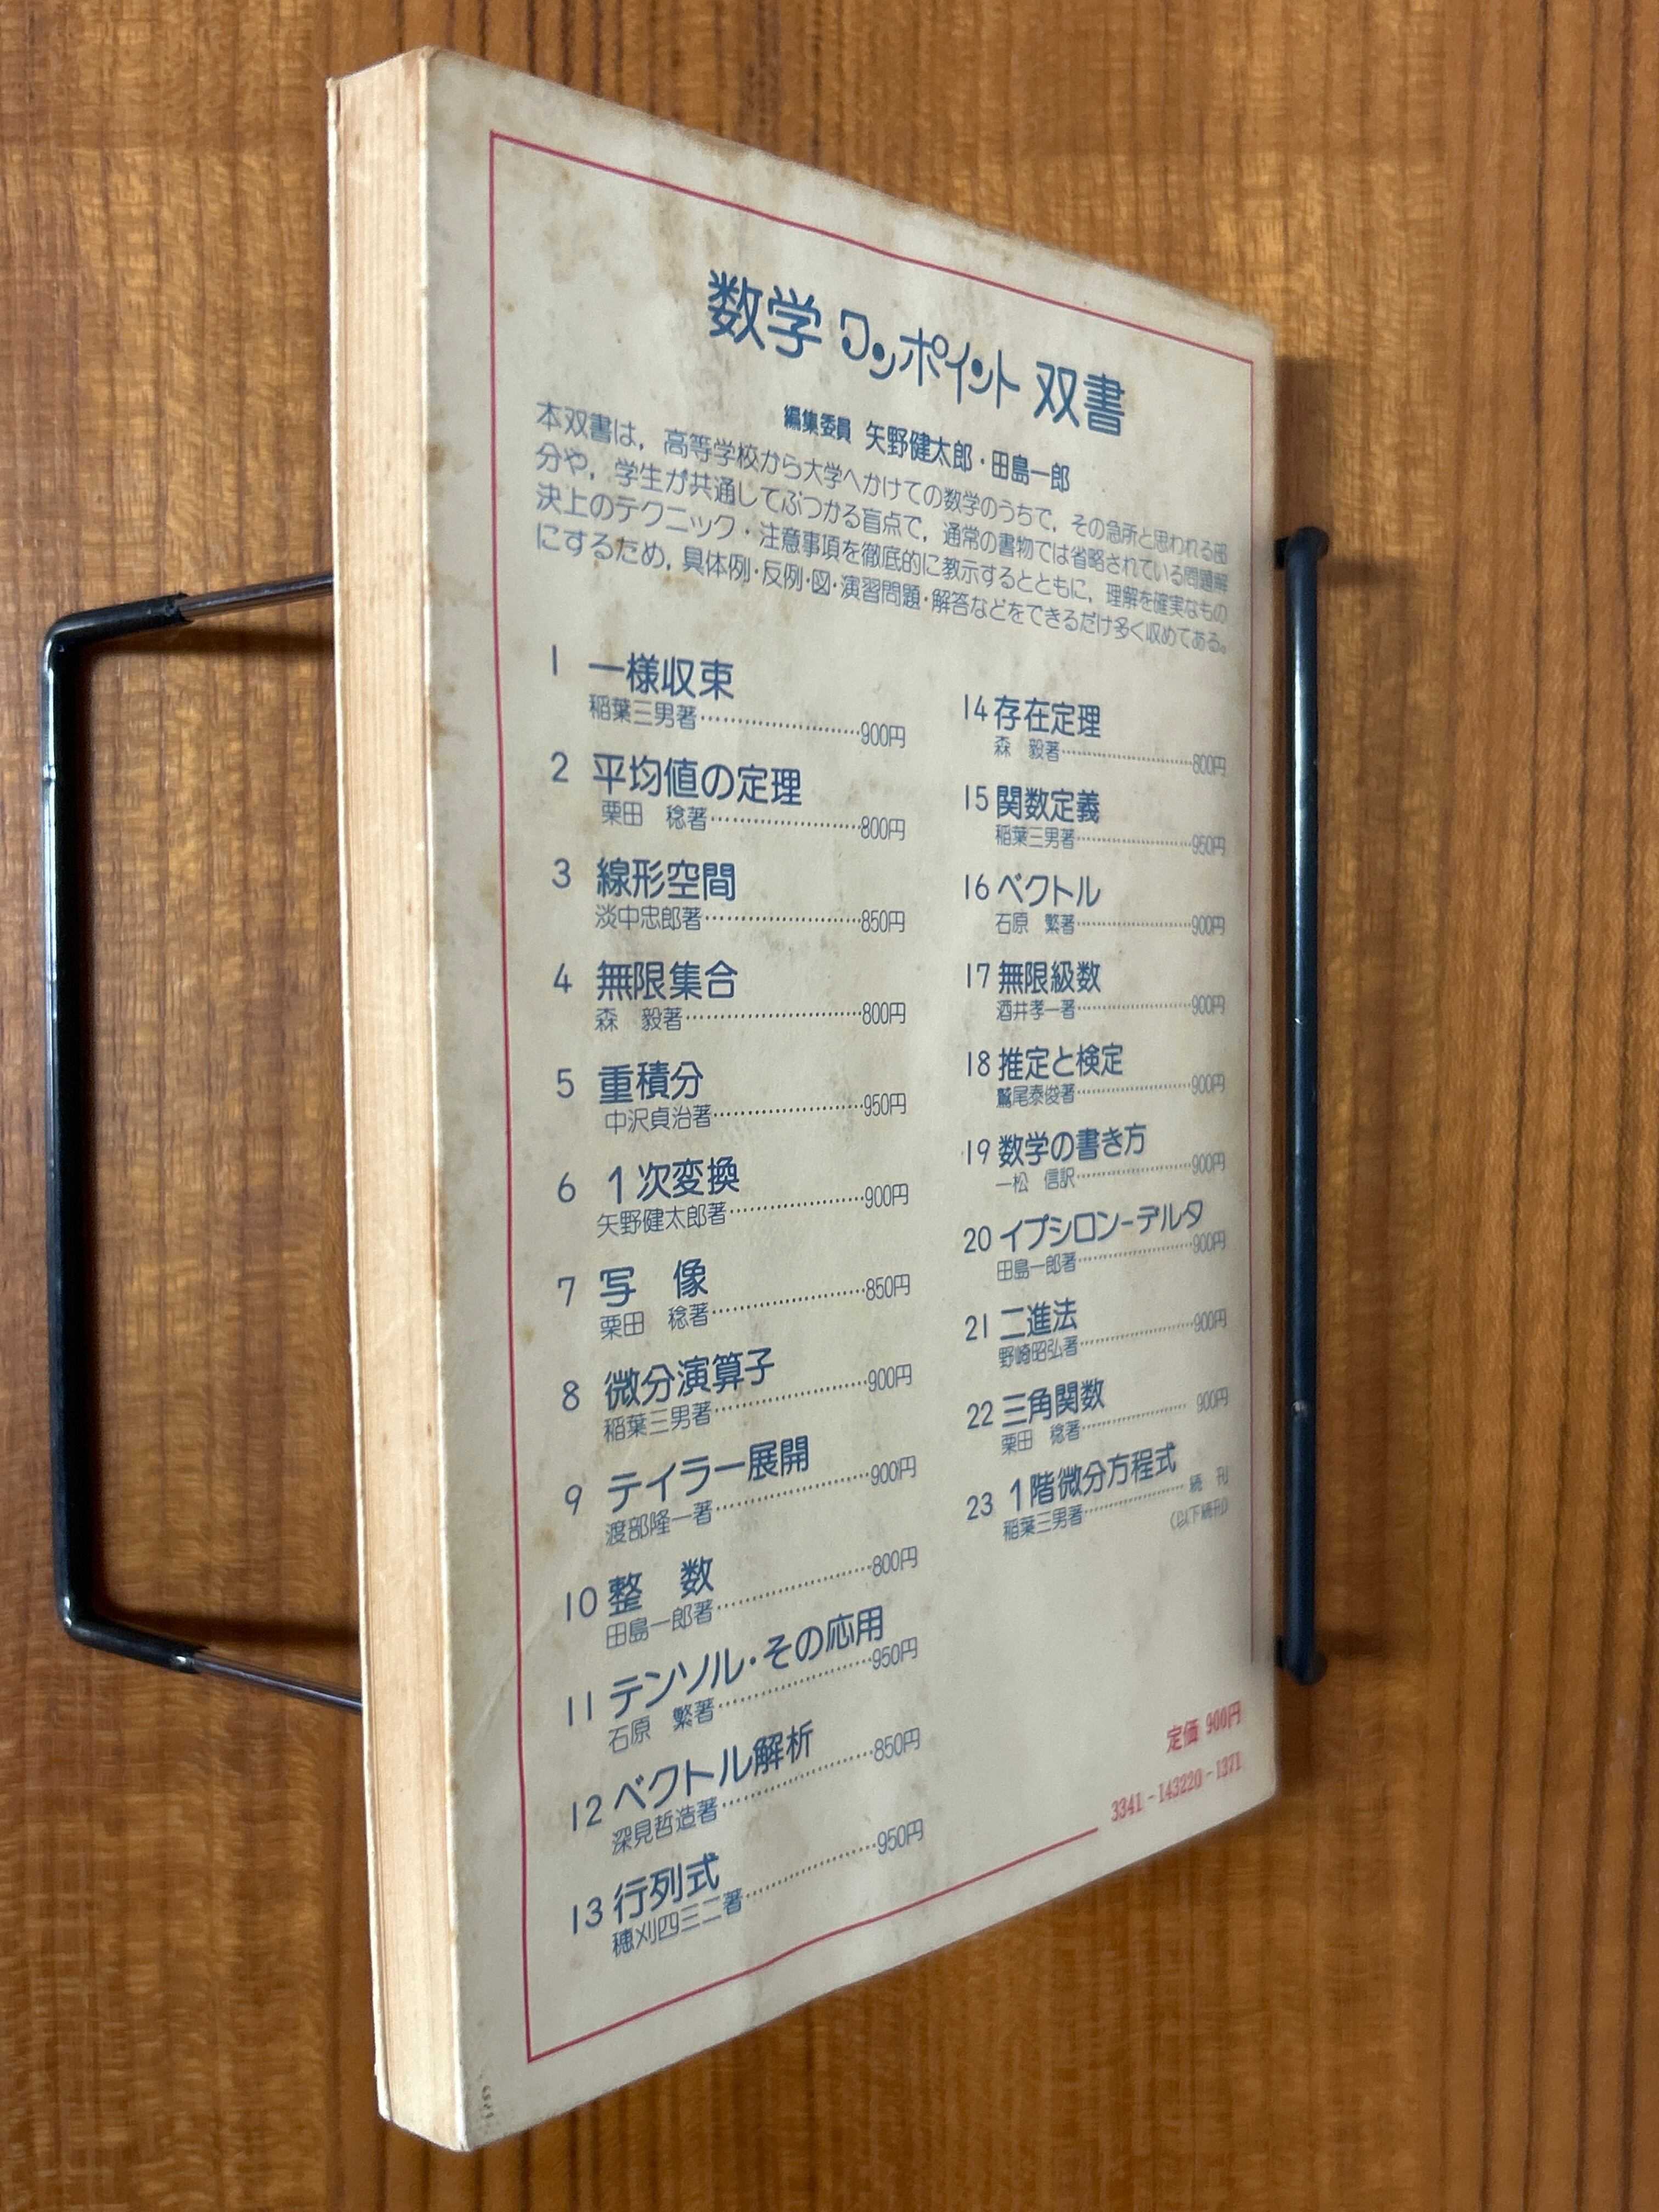 数学ワンポイント双書
編集委員 矢野健太郎・田島一郎
本双書は，高等学校から大学へかけての数学のうちで，その急所と思われる部
分や，学生が共通してぶつかる盲点で，通常の書物では省略されている問題解
決上のテクニック・注意事項を徹底的に教示するとともに，理解を確実なもの
にするため，具体例・反例・図・演習問題・解答などをできるだけ多く収めてある。
1 一様収束
稲葉三男著……………………900円
2 平均値の定理
栗田 稔著……………………800円
3 線形空間
淡中忠郎著……………………850円
4 無限集合
森 毅著……………………800円
5 重積分
中沢貞治著……………………950円
6 1次変換
矢野健太郎著……………………900円
7 写 像
栗田 稔著……………………850円
8 微分演算子
稲葉三男著……………………900円
9 テイラー展開
渡部隆一著……………………900円
10 整 数
田島一郎著……………………800円
11 テンソル・その応用
石原 繁著……………………950円
12 ベクトル解析
深見哲造著……………………850円
13 行列式
穂刈四三二著……………………950円
14 存在定理
森 毅著……………………800円
15 関数定義
稲葉三男著……………………950円
16 ベクトル
石原 繁著……………………900円
17 無限級数
酒井孝一著……………………900円
18 推定と検定
鷲尾泰俊著……………………900円
19 数学の書き方
一松 信訳……………………900円
20 イプシロン-デルタ
田島一郎著……………………900円
21 二進法
野崎昭弘著……………………900円
22 三角関数
栗田 稔著……………………900円
23 1階微分方程式
稲葉三男著……………………続 刊
(以下続刊)
定価 900円
3341-143220-1371